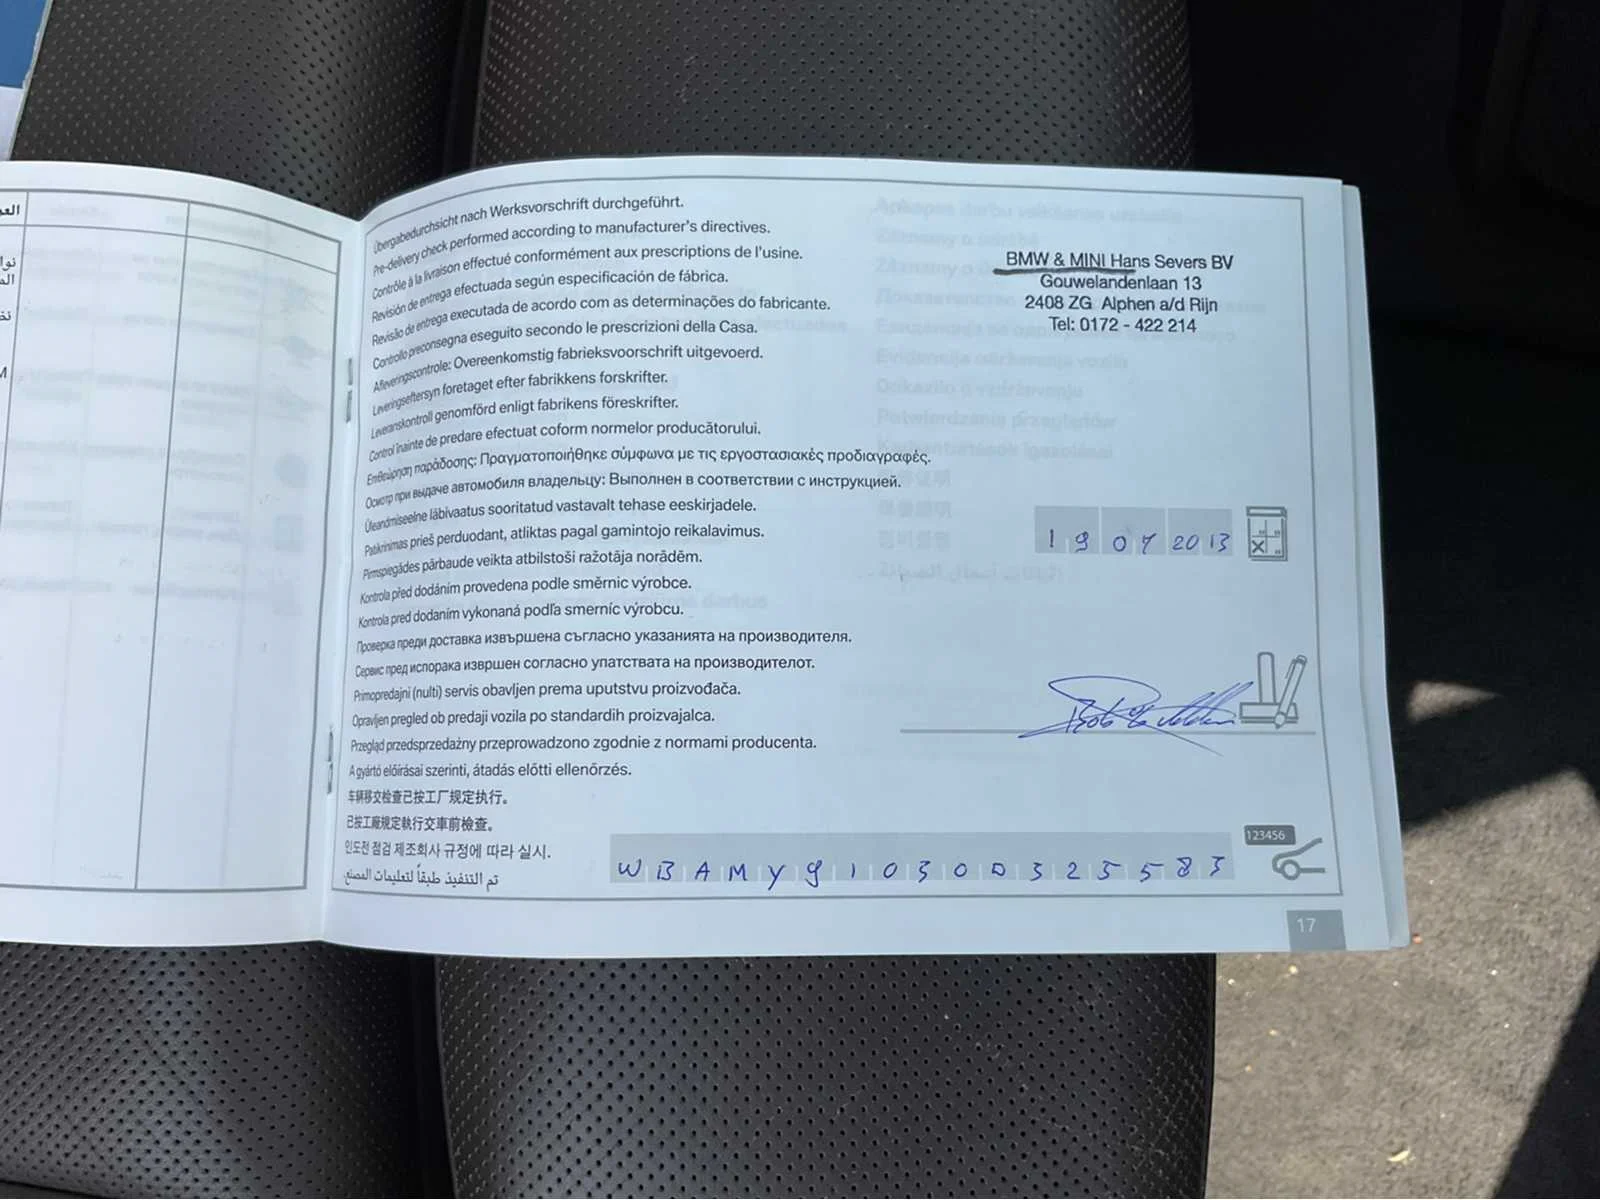 Übergabedurchsicht nach Werksvorschrift durchgeführt.
Pre-delivery check performed according to manufacturer's directives.
Contrôle à la livraison effectué conformément aux prescriptions de l'usine.
Revisión de entrega efectuada según especificación de fábrica.
Revisão de entrega executada de acordo com as determinações do fabricante.
Controllo preconsegna eseguito secondo le prescrizioni della Casa.
Afleveringscontrole: Overeenkomstig fabrieksvoorschrift uitgevoerd.
Leveringseftersyn foretaget efter fabrikkens forskrifter.
Leveranskontroll genomförd enligt fabrikens föreskrifter.
Control înainte de predare efectuat coform normelor producătorului.
Επιθεώρηση παράδοσης: Πραγματοποιήθηκε σύμφωνα με τις εργοστασιακές προδιαγραφές.
Осмотр при выдаче автомобиля владельцу: Выполнен в соответствии с инструкцией.
Üleandmiseelne läbivaatus sooritatud vastavalt tehase eeskirjadele.
Patikrinimas prieš perduodant, atliktas pagal gamintojo reikalavimus.
Pirmspiegādes pārbaude veikta atbilstoši ražotāja norādēm.
Kontrola před dodáním provedena podle směrnic výrobce.
Kontrola pred dodaním vykonaná podľa smerníc výrobcu.
Проверка преди доставка извършена съгласно указанията на производителя.
Сервис пред испорака извршен согласно упатствата на производителот.
Primopredajni (nulti) servis obavljen prema uputstvu proizvođača.
Opravljen pregled ob predaji vozila po standardih proizvajalca.
Przegląd przedsprzedażny przeprowadzono zgodnie z normami producenta.
A gyártó előírásai szerinti, átadás előtti ellenőrzés.
车辆移交检查已按工厂规定执行。
已按工廠規定執行交車前檢查。
인도전 점검 제조회사 규정에 따라 실시.
تم التنفيذ طبقاً لتعليمات المصنع.
BMW & MINI Hans Severs BV
Gouwelandenlaan 13
2408 ZG Alphen a/d Rijn
Tel: 0172 - 422 214
19 07 2013
123456
WBAMY91030D325583
17